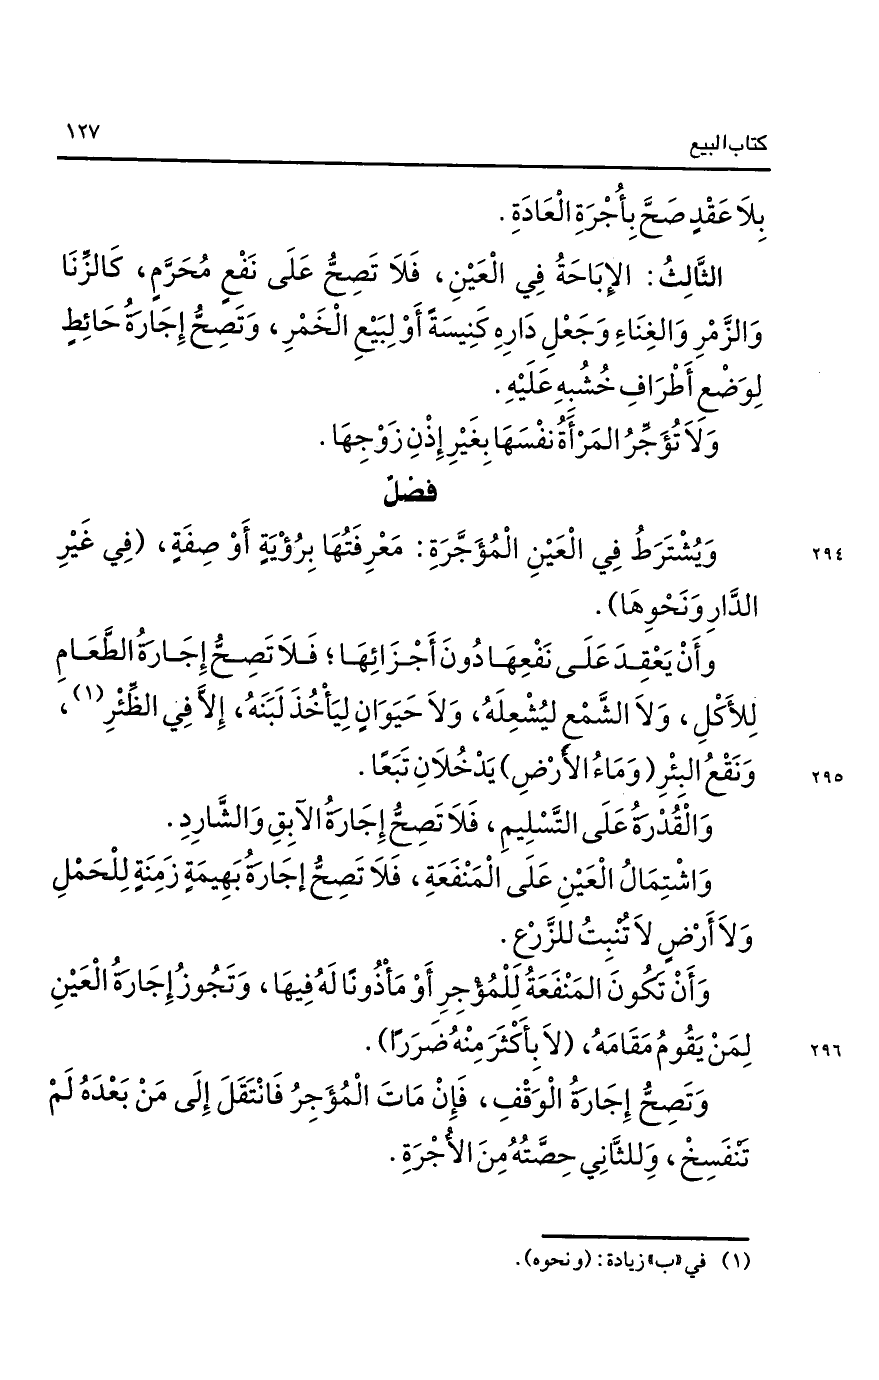 كتاب البيع
١٢٧
بِلاَ عَقْدٍ صَحَّ بِأُجْرَةِ الْعَادَةِ .
الثَّالِثُ : الإِبَاحَةُ فِي الْعَيْنِ ، فَلاَ تَصِحُّ عَلَى نَفْعٍ مُحَرَّمٍ ، كَالزِّنَا
وَالزَّمْرِ وَالغِنَاءِ وَجَعْلِ دَارِهِ كَنِيسَةً أَوْ لِبَيْعِ الْخَمْرِ ، وَتَصِحُّ إِجَارَةُ حَائِطٍ
لِوَضْعِ أَطْرَافِ خُشُبِهِ عَلَيْهِ .
وَلَا تُؤَجِّرُ المَرْأَةُ نَفْسَهَا بِغَيْرِ إِذْنِ زَوْجِهَا .
فصْلٌ
٢٩٤ وَيُشْتَرَطُ فِي الْعَيْنِ الْمُؤَجَّرَةِ : مَعْرِفَتُهَا بِرُؤْيَةٍ أَوْ صِفَةٍ ، (فِي غَيْرِ
الدَّارِ وَنَحْوِهَا) .
وأَنْ يَعْقِدَ عَلَى نَفْعِهَا دُونَ أَجْزَائِهَا ؛ فَلاَ تَصِحُّ إِجَارَةُ الطَّعَامِ
لِلأَكْلِ ، وَلاَ الشَّمْعِ لِيُشْعِلَهُ، وَلاَ حَيَوَانٍ لِيَأْخُذَ لَبَنَهُ، إِلاَّ فِي الظِّئْرِ(١)،
٢٩٥ وَنَقْعُ البِئْرِ (وَمَاءُ الأَرْضِ) يَدْخُلاَنِ تَبَعًا .
وَالْقُدْرَةُ عَلَى التَّسْلِيمِ ، فَلاَ تَصِحُّ إِجَارَةُ الآبِقِ وَالشَّارِدِ .
وَاشْتِمَالُ الْعَيْنِ عَلَى الْمَنْفَعَةِ ، فَلَا تَصِحُّ إجَارَةُ بَهِيمَةٍ زَمِنَةٍ لِلْحَمْلِ
وَلاَ أَرْضٍ لاَ تُنْبِتُ للزَّرْعِ .
وَأَنْ تَكُونَ المَنْفَعَةُ لِلْمُؤْجِرِ أَوْ مَأْذُونًا لَهُ فِيهَا ، وَتَجُوزُ إِجَارَةُ الْعَيْنِ
٢٩٦ لِمَنْ يَقُومُ مَقَامَهُ، (لاَ بِأَكْثَرَ مِنْهُ ضَرَرًا) .
وَتَصِحُّ إِجَارَةُ الْوَقْفِ ، فَإِنْ مَاتَ الْمُؤَجِرُ فَانْتَقَلَ إِلَى مَنْ بَعْدَهُ لَمْ
تَنْفَسِخْ ، وَلِلثَّانِي حِصَّتُهُ مِنَ الأُجْرَةِ .
(١) في «ب» زيادة : (ونحوه) .